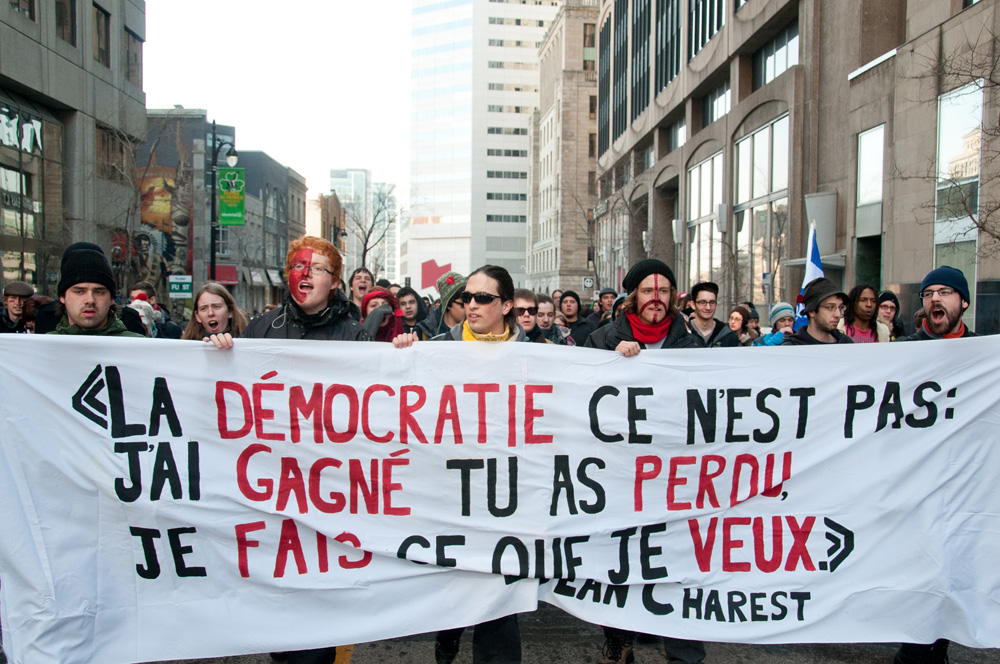 «LA DÉMOCRATIE CE N'EST PAS:
J'AI GAGNÉ TU AS PERDU,
JE FAIS CE QUE JE VEUX.»
JEAN CHAREST